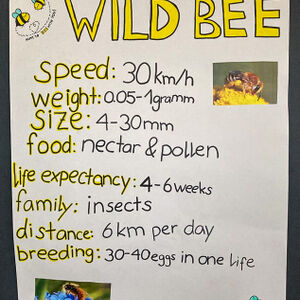 WILD BEE
speed: 30 km/h
weight: 0.05-1gramm
size: 4-30mm
food: nectar & pollen
life expectancy: 4-6 weeks
family: insects
distance: 6 km per day
breeding: 30-40 eggs in one life